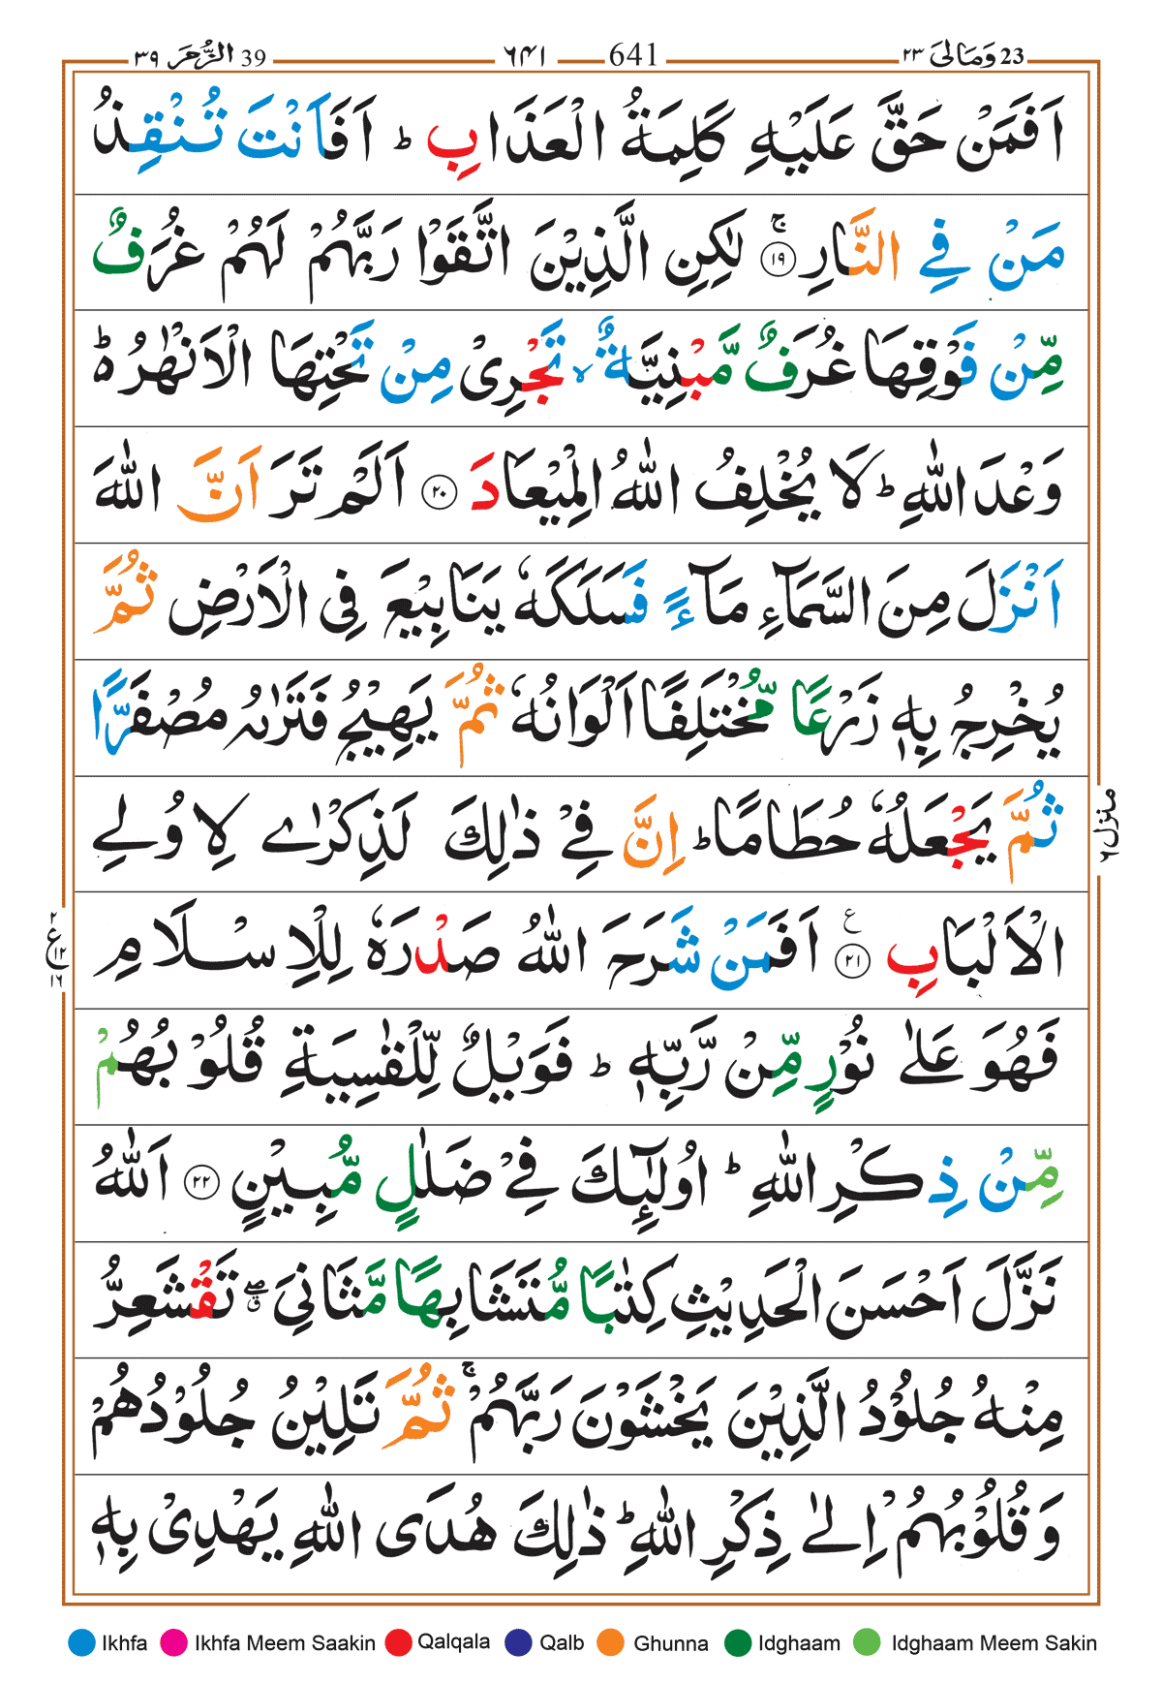 39 الزُّمَر ٣٩ ٦٤١ 641 23 وَمَالِیَ ٢٣
اَفَمَنْ حَقَّ عَلَیْهِ كَلِمَةُ الْعَذَابِ ؕ اَفَاَنْتَ تُنْقِذُ
مَنْ فِی النَّارِ ۚ ﴿١٩﴾ لٰكِنِ الَّذِیْنَ اتَّقَوْا رَبَّهُمْ لَهُمْ غُرَفٌ
مِّنْ فَوْقِهَا غُرَفٌ مَّبْنِیَّةٌ ۙ تَجْرِیْ مِنْ تَحْتِهَا الْاَنْهٰرُ ؕ۬
وَعْدَ اللّٰهِ ؕ لَا یُخْلِفُ اللّٰهُ الْمِیْعَادَ ﴿٢٠﴾ اَلَمْ تَرَ اَنَّ اللّٰهَ
اَنْزَلَ مِنَ السَّمَآءِ مَآءً فَسَلَكَهٗ یَنَابِیْعَ فِی الْاَرْضِ ثُمَّ
یُخْرِجُ بِهٖ زَرْعًا مُّخْتَلِفًا اَلْوَانُهٗ ثُمَّ یَهِیْجُ فَتَرٰىهُ مُصْفَرًّا
ثُمَّ یَجْعَلُهٗ حُطَامًا ؕ اِنَّ فِیْ ذٰلِكَ لَذِكْرٰی لِاُولِی
الْاَلْبَابِ ۧ ﴿٢١﴾ اَفَمَنْ شَرَحَ اللّٰهُ صَدْرَهٗ لِلْاِسْلَامِ
فَهُوَ عَلٰی نُوْرٍ مِّنْ رَّبِّهٖ ؕ فَوَیْلٌ لِّلْقٰسِیَةِ قُلُوْبُهُمْ
مِّنْ ذِكْرِ اللّٰهِ ؕ اُولٰٓئِكَ فِیْ ضَلٰلٍ مُّبِیْنٍ ﴿٢٢﴾ اَللّٰهُ
نَزَّلَ اَحْسَنَ الْحَدِیْثِ كِتٰبًا مُّتَشَابِهًا مَّثَانِیَ ۖۗ تَقْشَعِرُّ
مِنْهُ جُلُوْدُ الَّذِیْنَ یَخْشَوْنَ رَبَّهُمْ ۚ ثُمَّ تَلِیْنُ جُلُوْدُهُمْ
وَ قُلُوْبُهُمْ اِلٰی ذِكْرِ اللّٰهِ ؕ ذٰلِكَ هُدَی اللّٰهِ یَهْدِیْ بِهٖ
منزل ٦
٢
ع ١٢
١٦
Ikhfa Ikhfa Meem Saakin Qalqala Qalb Ghunna Idghaam Idghaam Meem Sakin